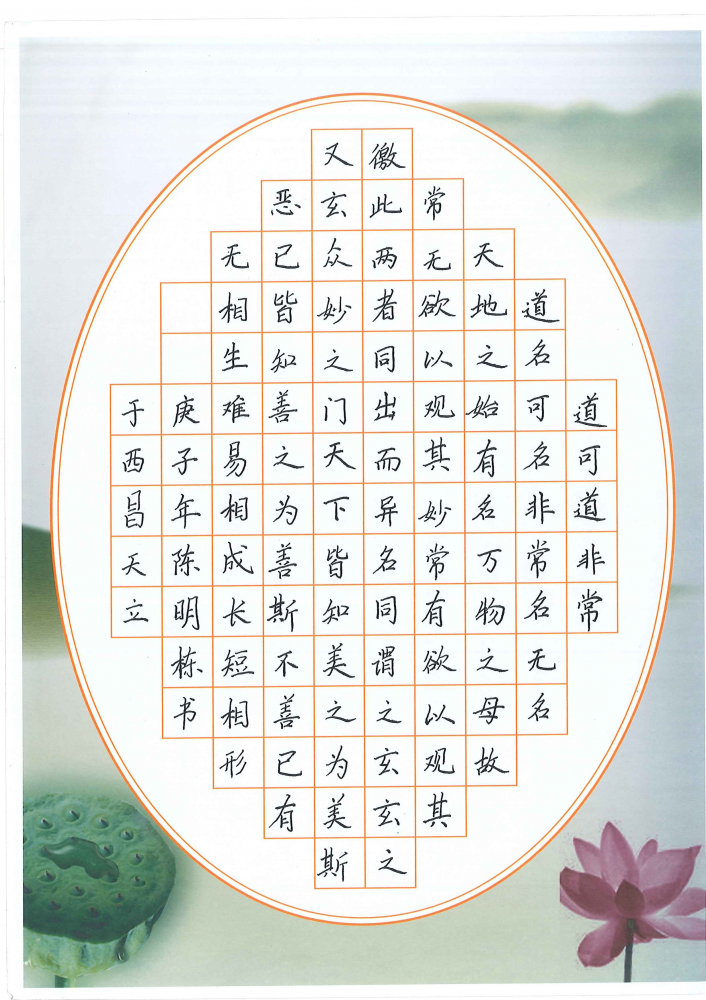 道可道非常
道名可名非常名无名
天地之始有名万物之母故
常无欲以观其妙常有欲以观其
徼此两者同出而异名同谓之玄玄之
又玄众妙之门天下皆知美之为美斯
恶已皆知善之为善斯不善已有
无相生难易相成长短相形
庚子年陈明栋书
于西昌天立